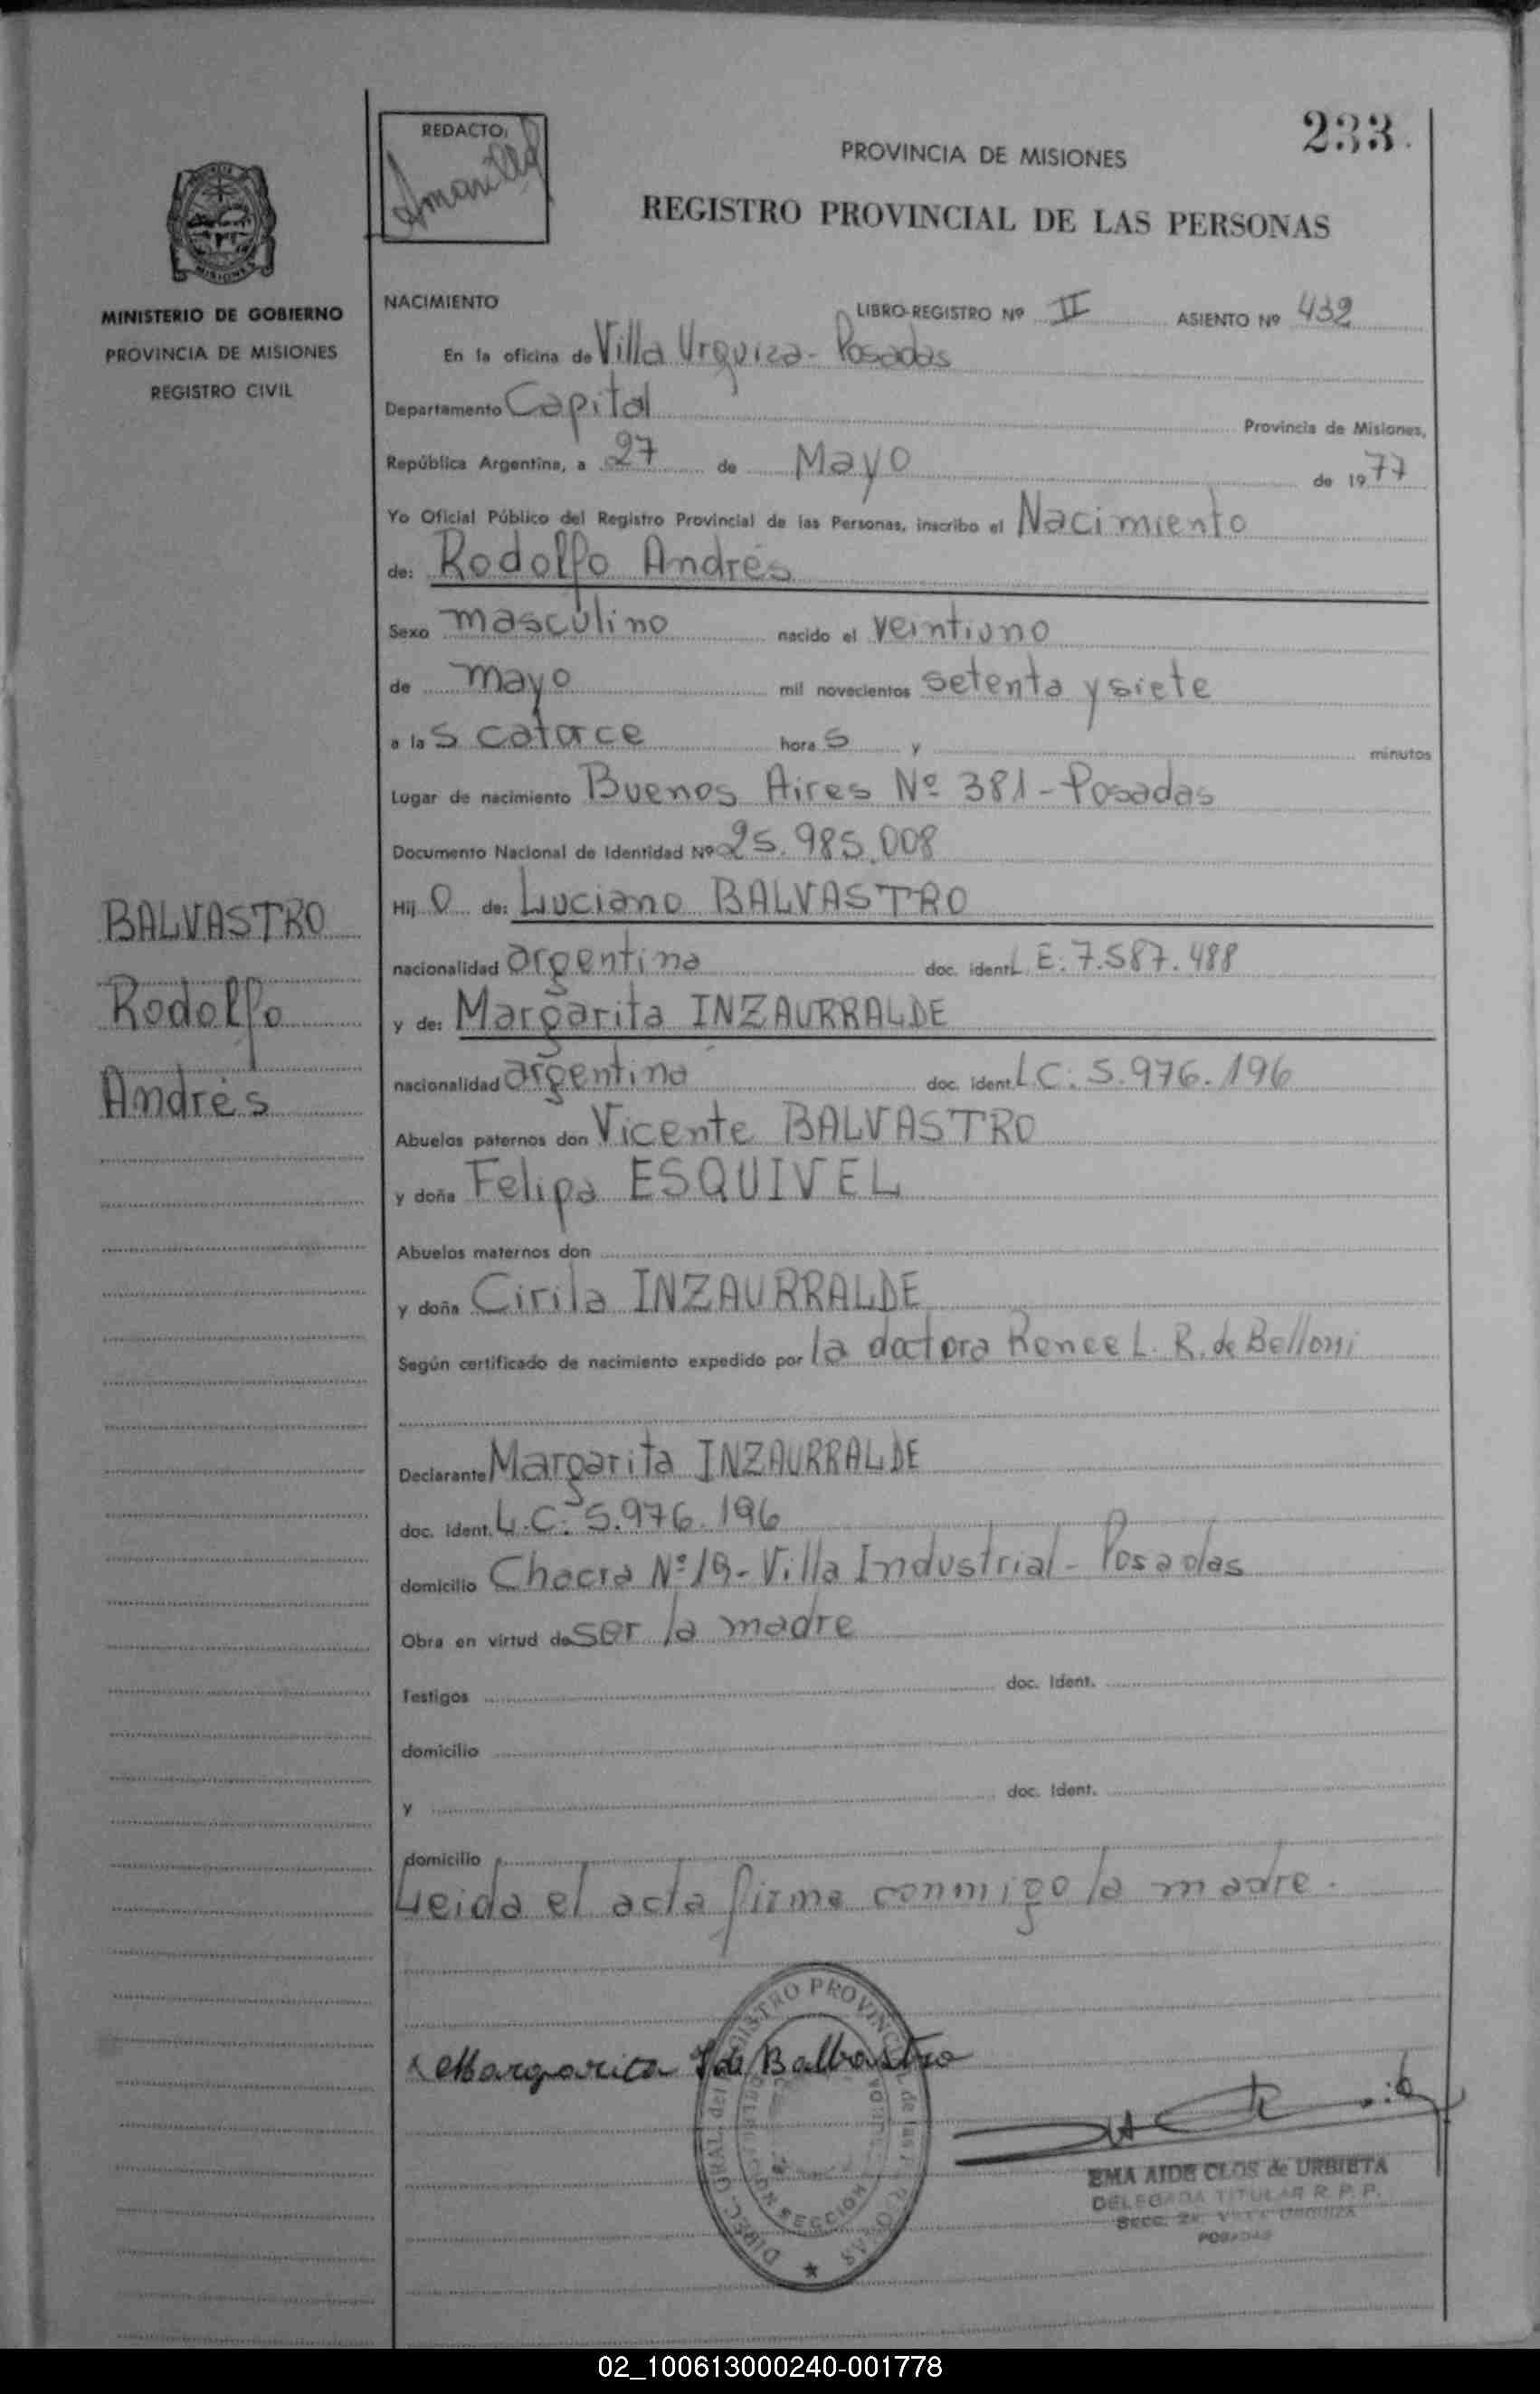 233.
REDACTO:
PROVINCIA DE MISIONES
REGISTRO PROVINCIAL DE LAS PERSONAS
MISIONES
MINISTERIO DE GOBIERNO
PROVINCIA DE MISIONES
REGISTRO CIVIL
NACIMIENTO
LIBRO-REGISTRO Nº II ASIENTO Nº 432
En la oficina de Villa Urquiza - Posadas
Departamento Capital Provincia de Misiones,
República Argentina, a 27 de Mayo de 1977
Yo Oficial Público del Registro Provincial de las Personas, inscribo el Nacimiento
de: Rodolfo Andrés
Sexo masculino nacido el veintiuno
de mayo mil novecientos setenta y siete
a las catorce horas y minutos
Lugar de nacimiento Buenos Aires Nº 381 - Posadas
Documento Nacional de Identidad Nº 25.985.008
Hijo de: Luciano BALVASTRO
nacionalidad argentina doc. ident. L.E. 7.587.488
y de: Margarita INZAURRALDE
nacionalidad argentina doc. ident. L.C: 5.976.196
Abuelos paternos don Vicente BALVASTRO
y doña Felipa ESQUIVEL
Abuelos maternos don
y doña Cirila INZAURRALDE
Según certificado de nacimiento expedido por la doctora Renee L. R. de Belloni
Declarante Margarita INZAURRALDE
doc. ident. L.C: 5.976.196
domicilio Chacra Nº 19 - Villa Industrial - Posadas
Obra en virtud de ser la madre
Testigos doc. Ident.
domicilio
y doc. Ident.
domicilio
Leida el acta firma conmigo la madre.
BALVASTRO
Rodolfo
Andrés
Margarita I de Balbastro
DIREC. GRAL. del REGISTRO PROVINCIAL de las PERSONAS
SECCION
EMA AIDE CLOS de URBIETA
DELEGADA TITULAR R. P. P.
SECC. 2a. VILLA URQUIZA
POSADAS
02_100613000240-001778